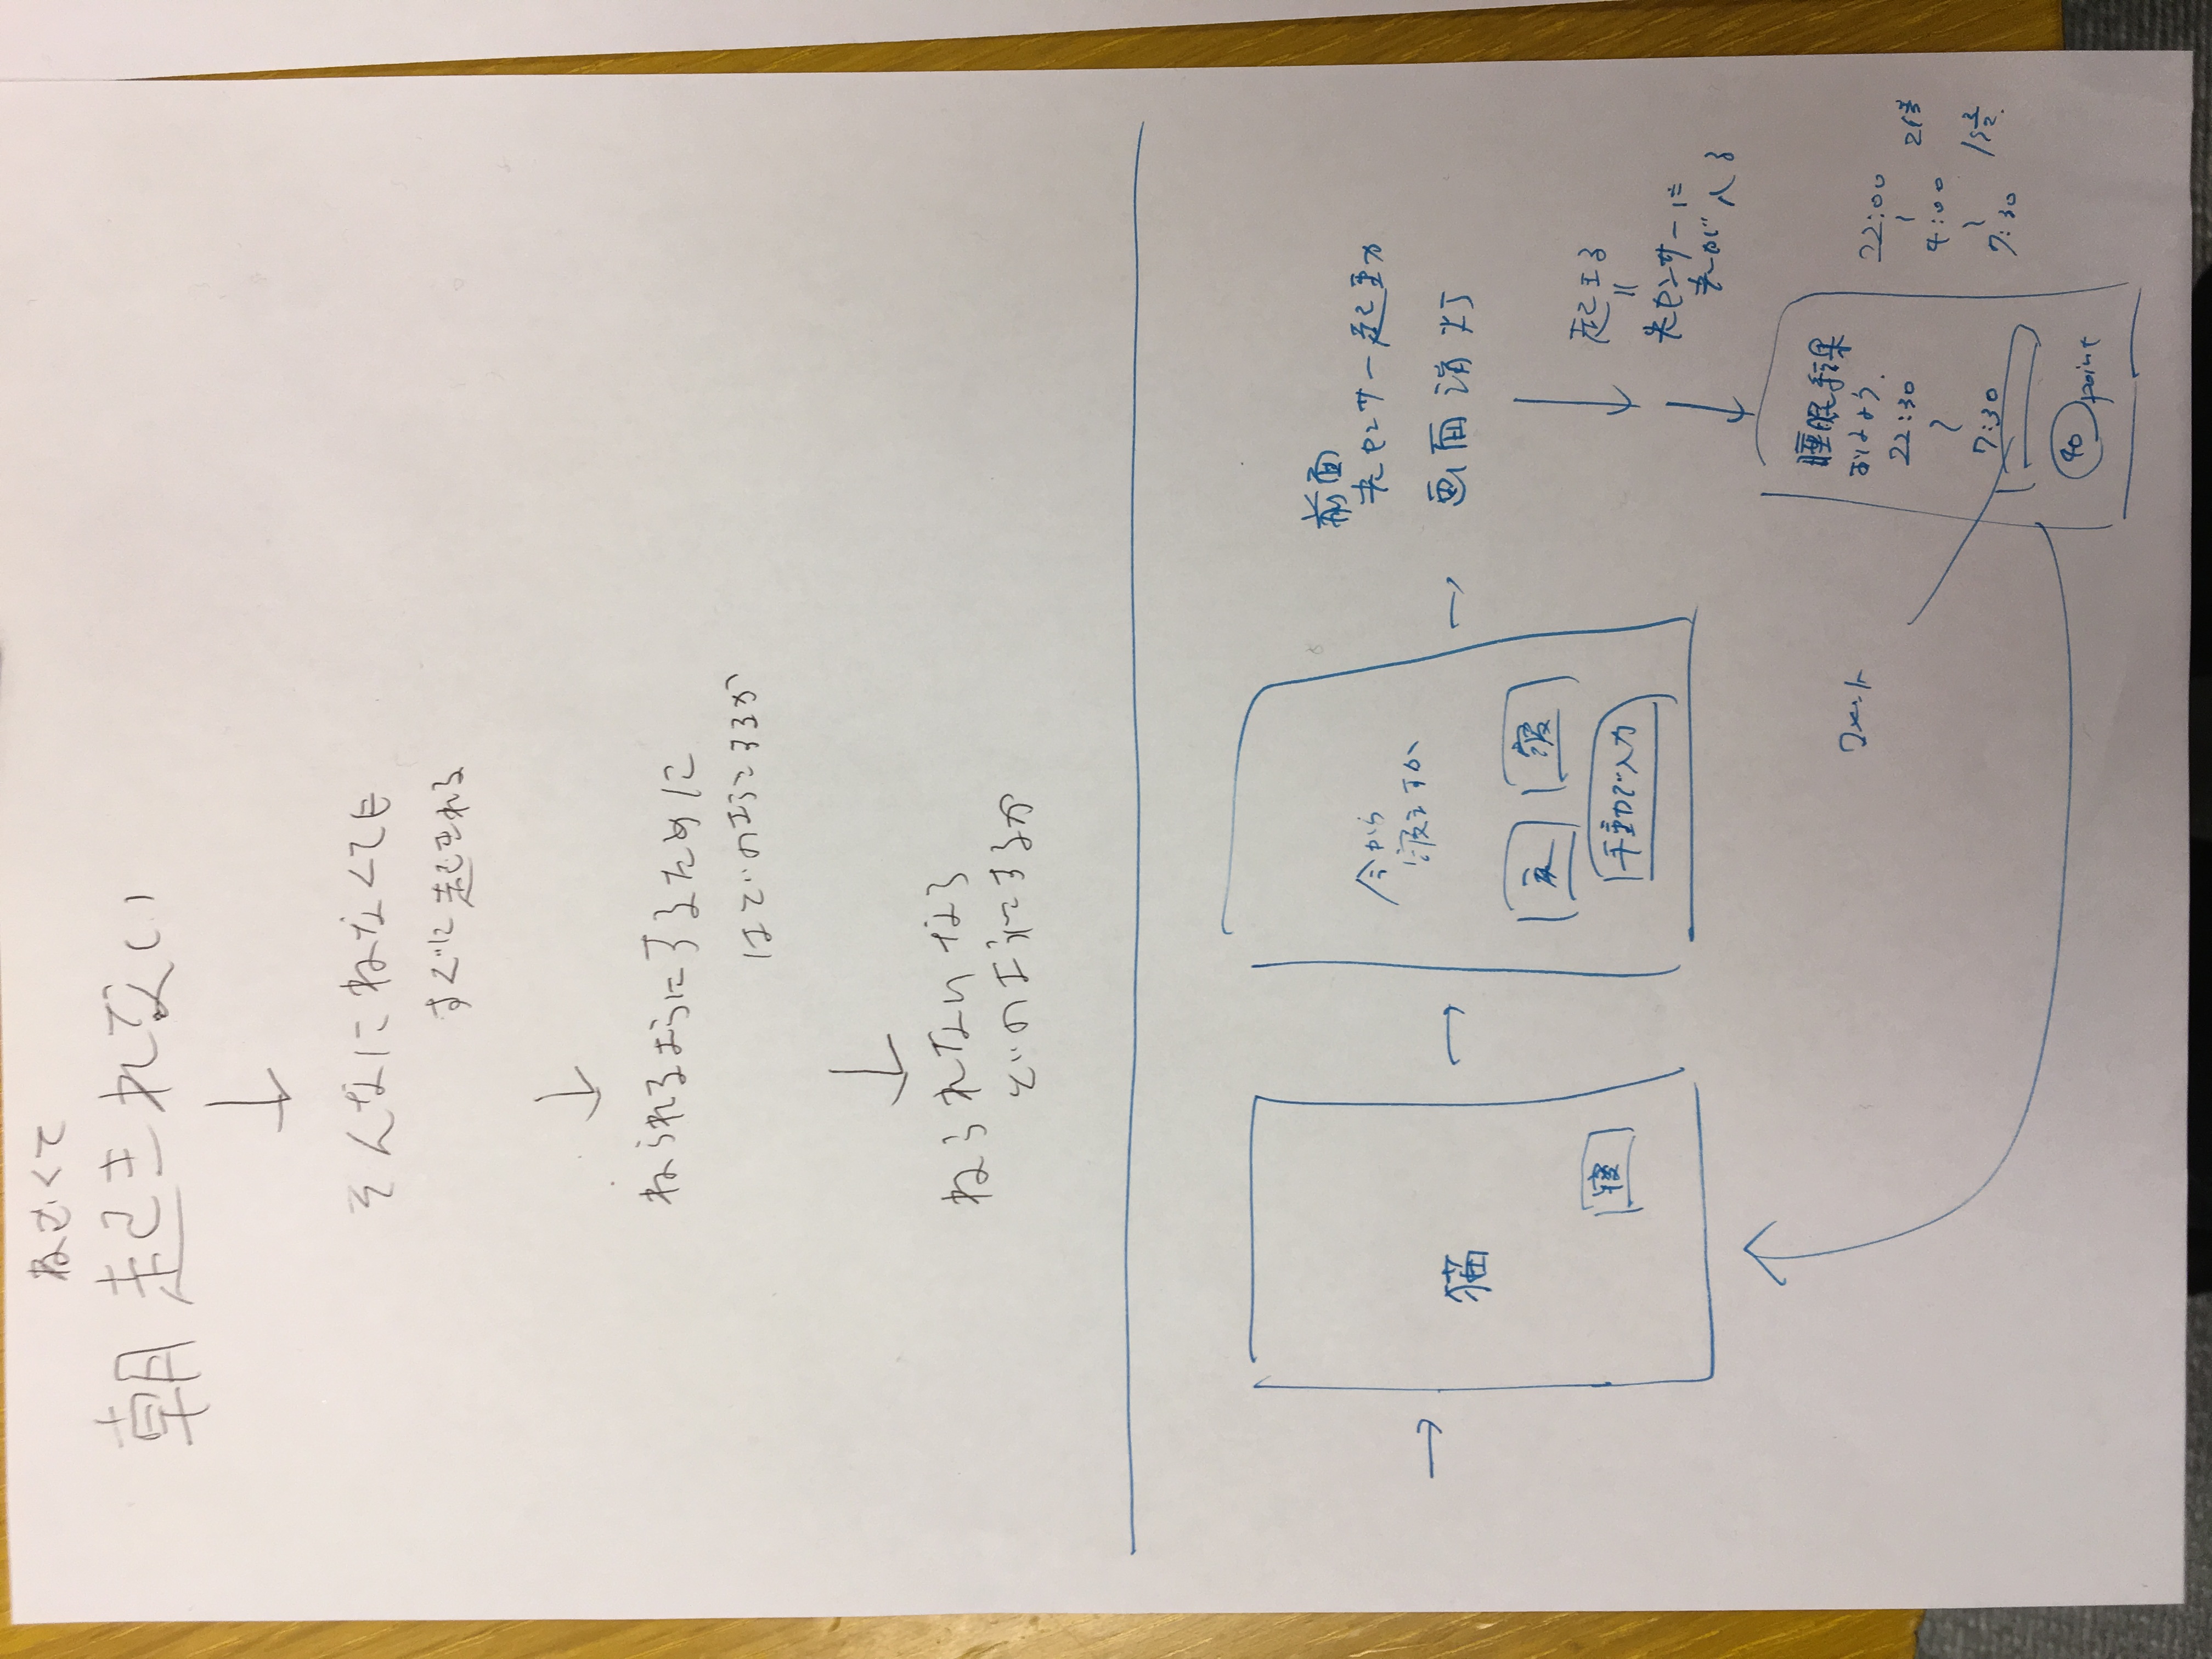 ねむくて
朝起きれない
そんなにねなくても
すぐに起きれる
ねられるようにするために
はどのようにするか
ねられないなら
どのようにするか
猫
寝
今から
寝ますか
戻
寝
手動で入力
前面
光センサー起動
画面消灯
起きる
=
光センサーに
光が入る
コメント
睡眠結果
おはよう
22:30
~
7:30
40 point
22:00
~
4:00
2倍
~
7:30